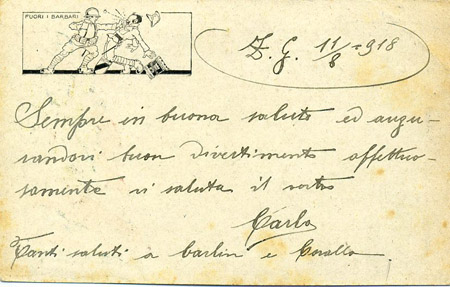 FUORI I BARBARI
Z. G. 11/8 =918
Sempre in buona salute ed augu-
randovi buon divertimento affettuo-
samente vi saluta il vostro
Carlo
Tanti saluti a Carlin e